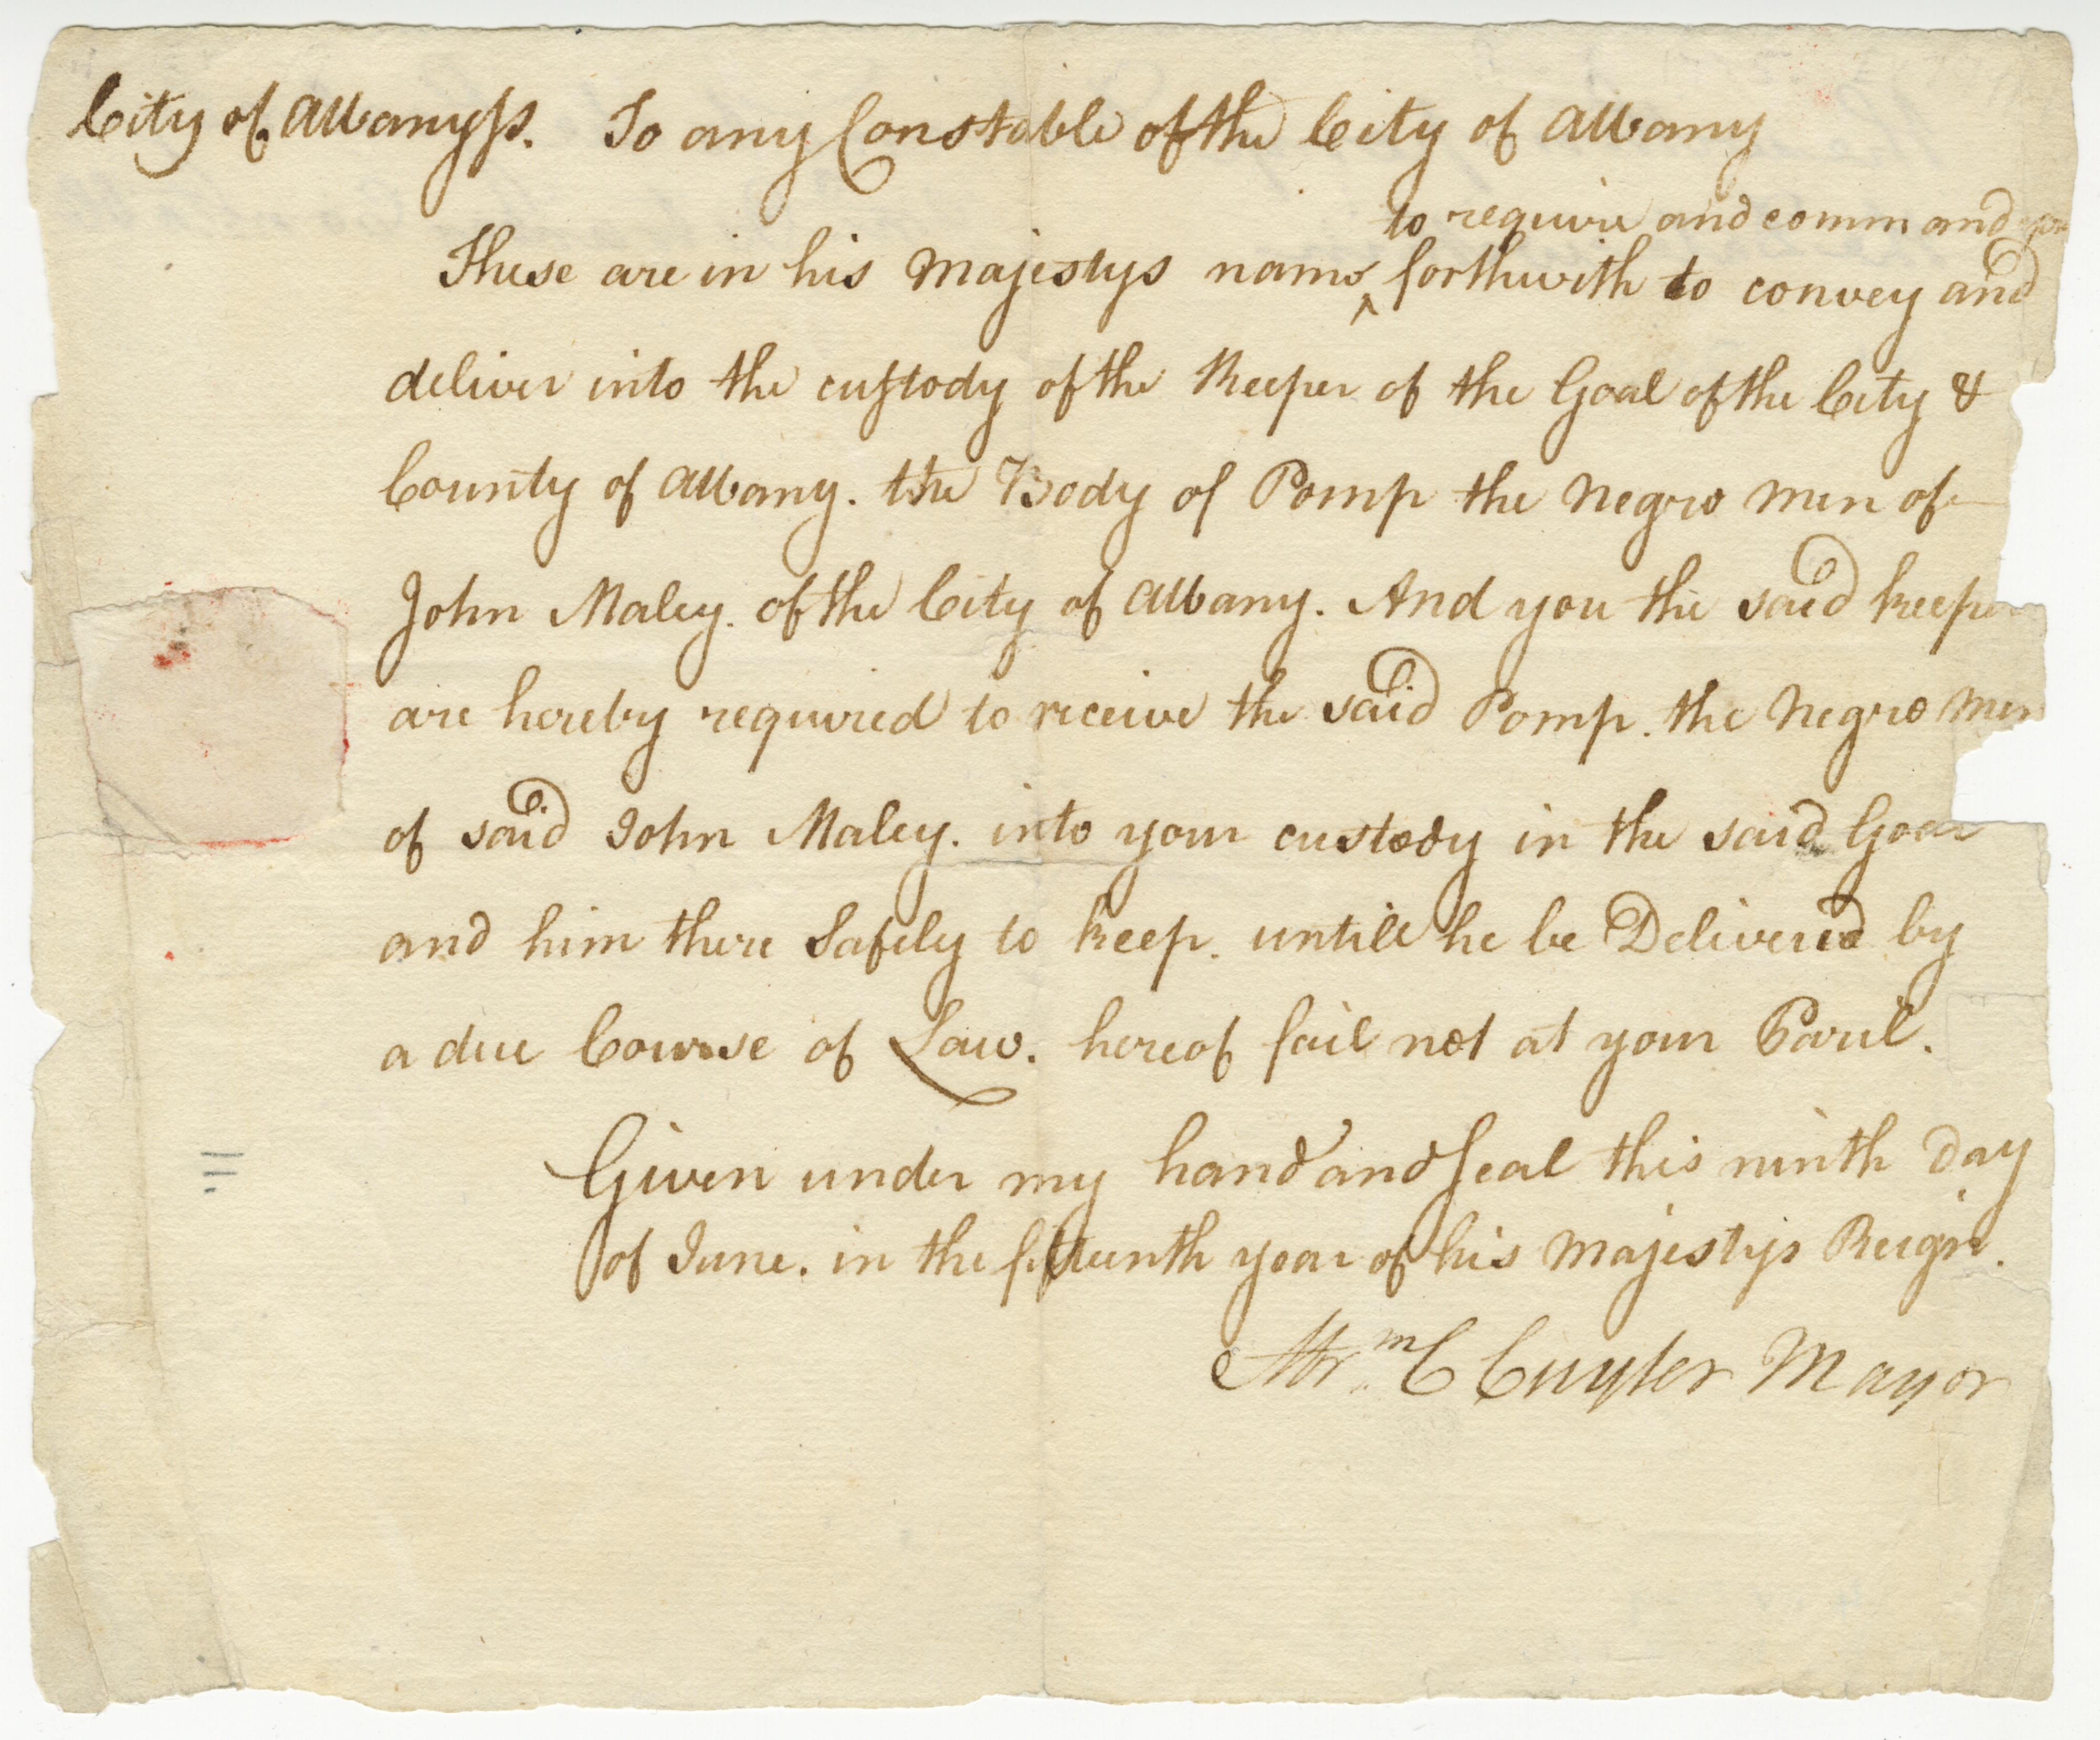 City of Albany ss. To any Constable of the City of Albany
to require and command you
These are in his Majestys name ^ forthwith to convey and
deliver into the custody of the Keeper of the Goal of the City &
County of Albany. the Body of Pomp the Negro men of
John Maley. of the City of Albany. And you the said keeper
are hereby required to receive the said Pomp. the Negro men
of said John Maley. into your custody in the said Goal
and him there Safely to keep. untill he be Delivered by
a due Course of Law. hereof fail not at your Paril.
Given under my hand and Seal this ninth day
of June. in the fifteenth year of his Majestys Reign.
Abrm C Cuyler Mayor